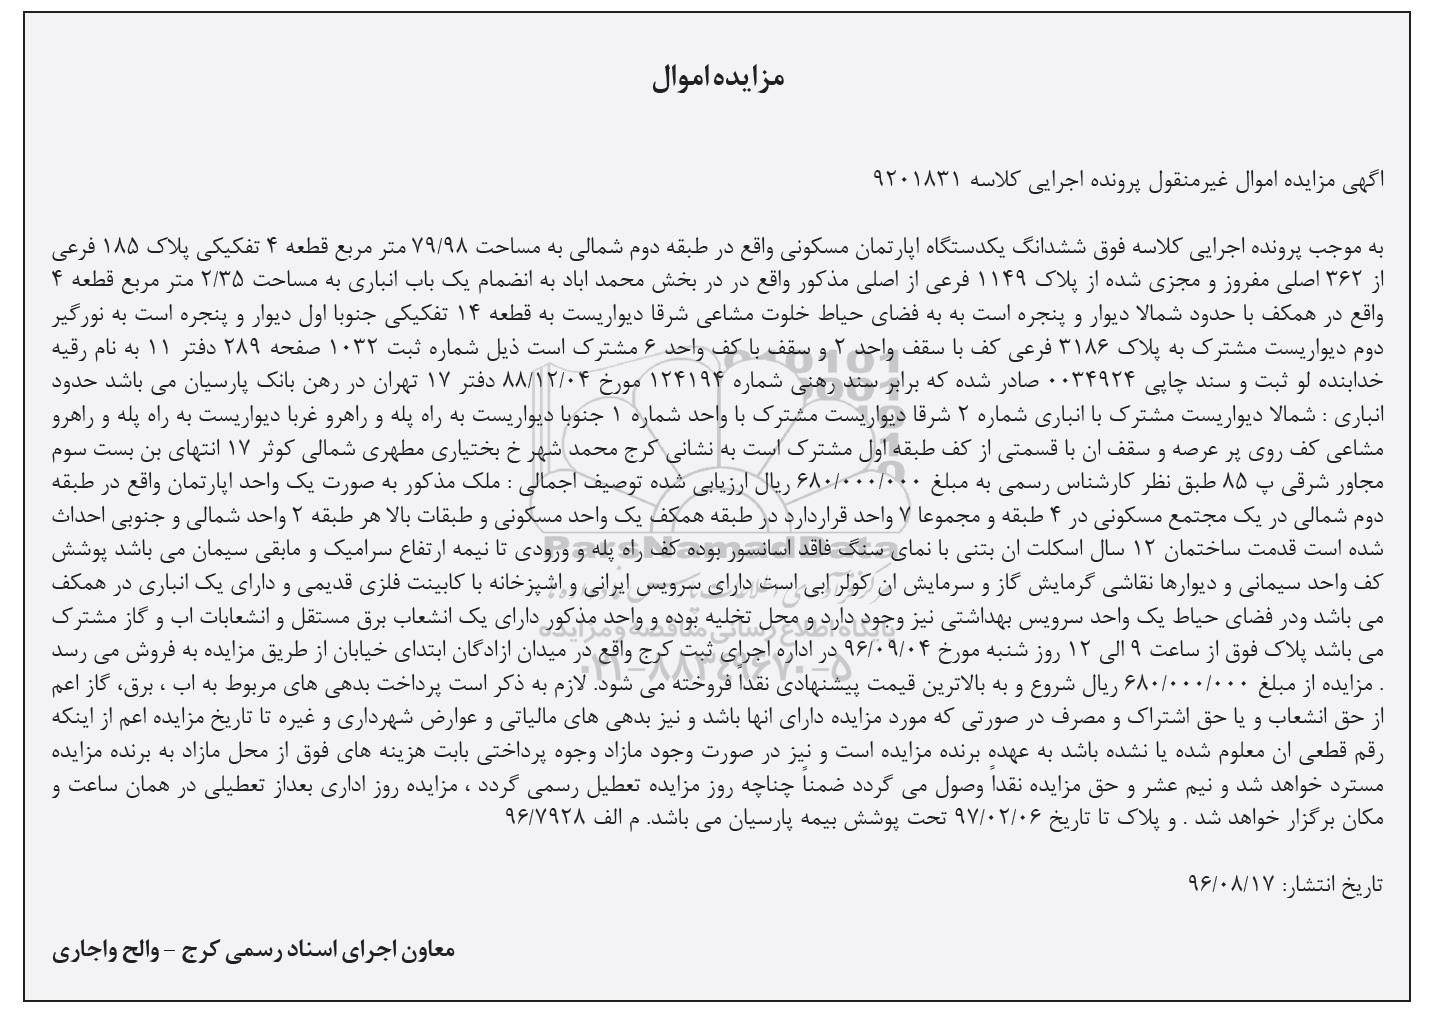 مزایده اموال
اگهی مزایده اموال غیرمنقول پرونده اجرایی کلاسه ۹۲۰۱۸۳۱
به موجب پرونده اجرایی کلاسه فوق ششدانگ یکدستگاه اپارتمان مسکونی واقع در طبقه دوم شمالی به مساحت ۷۹/۹۸ متر مربع قطعه ۴ تفکیکی پلاک ۱۸۵ فرعی
از ۳۶۲ اصلی مفروز و مجزی شده از پلاک ۱۱۴۹ فرعی از اصلی مذکور واقع در در بخش محمد اباد به انضمام یک باب انباری به مساحت ۲/۳۵ متر مربع قطعه ۴
واقع در همکف با حدود شمالا دیوار و پنجره است به به فضای حیاط خلوت مشاعی شرقا دیواریست به قطعه ۱۴ تفکیکی جنوبا اول دیوار و پنجره است به نورگیر
دوم دیواریست مشترک به پلاک ۳۱۸۶ فرعی کف با سقف واحد ۲ و سقف با کف واحد ۶ مشترک است ذیل شماره ثبت ۱۰۳۲ صفحه ۲۸۹ دفتر ۱۱ به نام رقیه
خدابنده لو ثبت و سند چاپی ۰۰۳۴۹۲۴ صادر شده که برابر سند رهنی شماره ۱۲۴۱۹۴ مورخ ۸۸/۱۲/۰۴ دفتر ۱۷ تهران در رهن بانک پارسیان می باشد حدود
انباری : شمالا دیواریست مشترک با انباری شماره ۲ شرقا دیواریست مشترک با واحد شماره ۱ جنوبا دیواریست به راه پله و راهرو غربا دیواریست به راه پله و راهرو
مشاعی کف روی پر عرصه و سقف ان با قسمتی از کف طبقه اول مشترک است به نشانی کرج محمد شهر خ بختیاری مطهری شمالی کوثر ۱۷ انتهای بن بست سوم
مجاور شرقی پ ۸۵ طبق نظر کارشناس رسمی به مبلغ ۶۸۰/۰۰۰/۰۰۰ ریال ارزیابی شده توصیف اجمالی : ملک مذکور به صورت یک واحد اپارتمان واقع در طبقه
دوم شمالی در یک مجتمع مسکونی در ۴ طبقه و مجموعا ۷ واحد قراردارد در طبقه همکف یک واحد مسکونی و طبقات بالا هر طبقه ۲ واحد شمالی و جنوبی احداث
شده است قدمت ساختمان ۱۲ سال اسکلت ان بتنی با نمای سنگ فاقد اسانسور بوده کف راه پله و ورودی تا نیمه ارتفاع سرامیک و مابقی سیمان می باشد پوشش
کف واحد سیمانی و دیوارها نقاشی گرمایش گاز و سرمایش ان کولر ابی است دارای سرویس ایرانی و اشپزخانه با کابینت فلزی قدیمی و دارای یک انباری در همکف
می باشد ودر فضای حیاط یک واحد سرویس بهداشتی نیز وجود دارد و محل تخلیه بوده و واحد مذکور دارای یک انشعاب برق مستقل و انشعابات اب و گاز مشترک
می باشد پلاک فوق از ساعت ۹ الی ۱۲ روز شنبه مورخ ۹۶/۰۹/۰۴ در اداره اجرای ثبت کرج واقع در میدان ازادگان ابتدای خیابان از طریق مزایده به فروش می رسد
. مزایده از مبلغ ۶۸۰/۰۰۰/۰۰۰ ریال شروع و به بالاترین قیمت پیشنهادی نقداً فروخته می شود. لازم به ذکر است پرداخت بدهی های مربوط به اب ، برق، گاز اعم
از حق انشعاب و یا حق اشتراک و مصرف در صورتی که مورد مزایده دارای انها باشد و نیز بدهی های مالیاتی و عوارض شهرداری و غیره تا تاریخ مزایده اعم از اینکه
رقم قطعی ان معلوم شده یا نشده باشد به عهده برنده مزایده است و نیز در صورت وجود مازاد وجوه پرداختی بابت هزینه های فوق از محل مازاد به برنده مزایده
مسترد خواهد شد و نیم عشر و حق مزایده نقداً وصول می گردد ضمناً چناچه روز مزایده تعطیل رسمی گردد ، مزایده روز اداری بعداز تعطیلی در همان ساعت و
مکان برگزار خواهد شد . و پلاک تا تاریخ ۹۷/۰۲/۰۶ تحت پوشش بیمه پارسیان می باشد. م الف ۹۶/۷۹۲۸
تاریخ انتشار: ۹۶/۰۸/۱۷
معاون اجرای اسناد رسمی کرج – والح واجاری
ParsNamadData
پایگاه اطلاع رسانی مناقصه و مزایده
۰۲۱-۸۸۳۴۹۶۷۰-۵